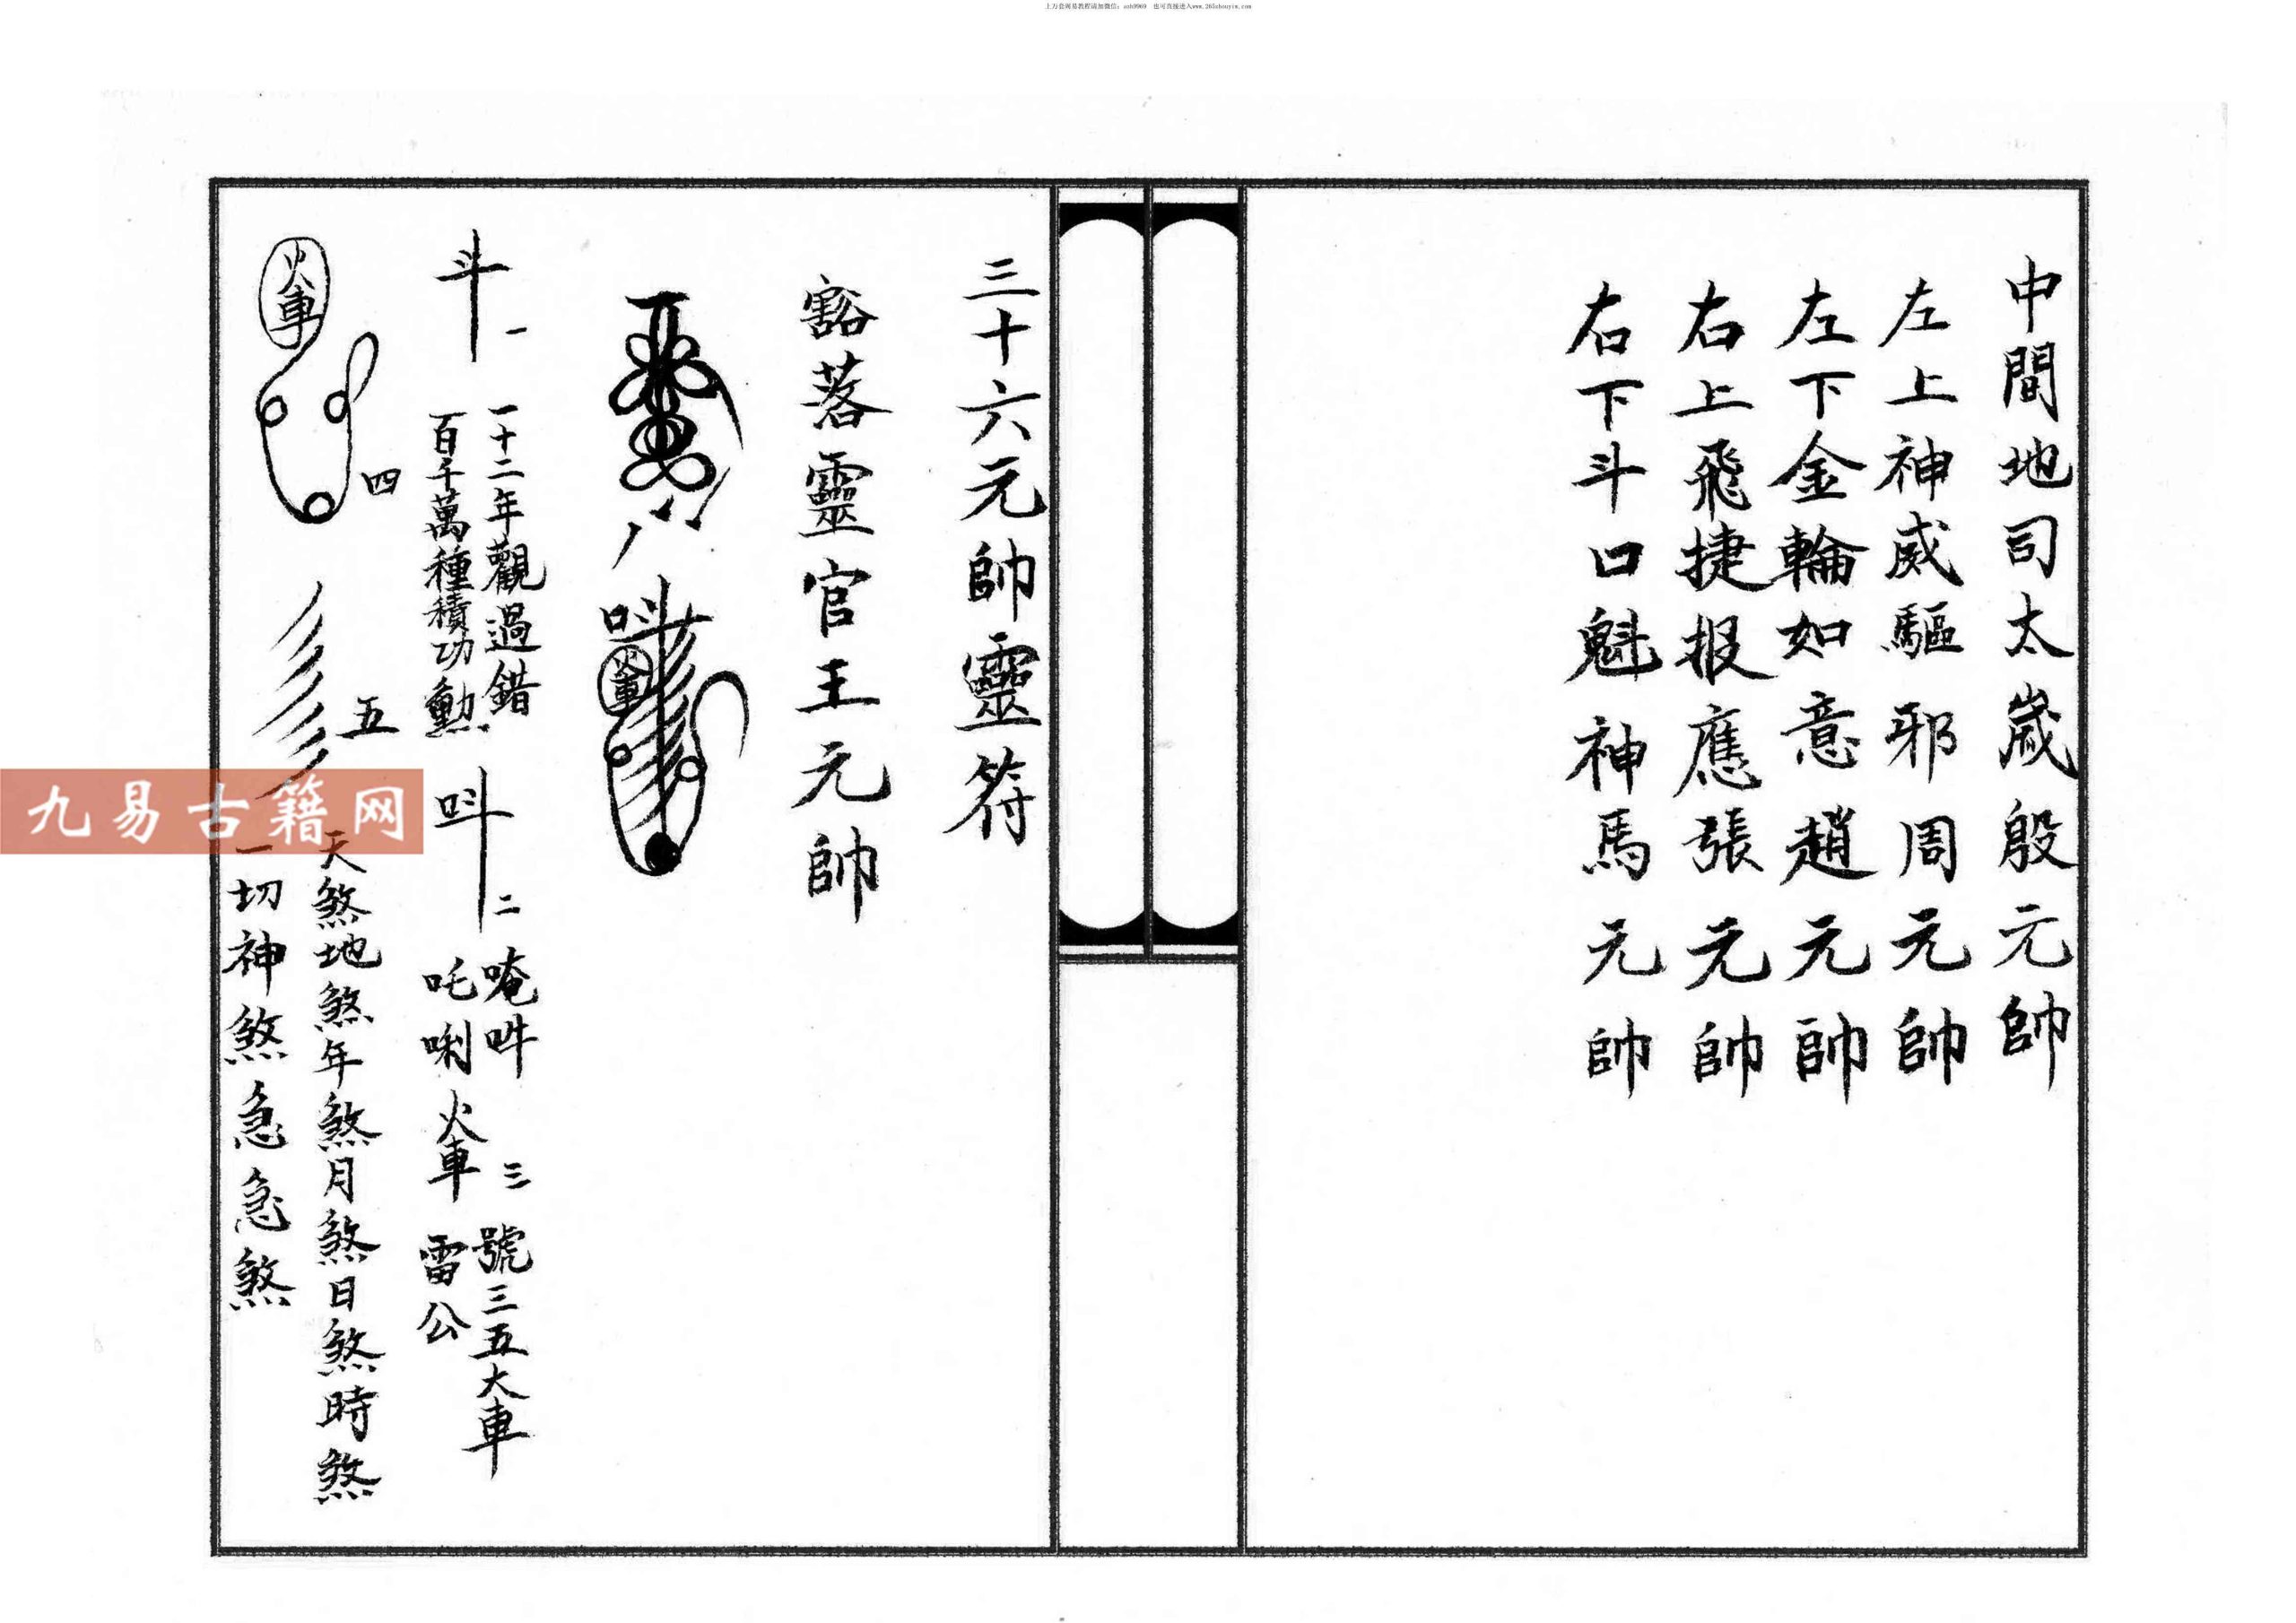 上万套周易教程请加微信:
也可直接进入www.
中間地司太歲殷元帥
左上神威驅邪周元帥
左下金輪如意趙元帥
右上飛捷报應張元帥
右下斗口魁神馬元帥
三十六元帥靈符
豁落靈官王元帥
火車
斗 一
一十二年觀過錯
百千萬種積功勳
二
唵吽
吒唎
火車 三
號三五大車
雷公
火車
四
五
天煞地煞年煞月煞日煞時煞
一切神煞急急煞
九易古籍网